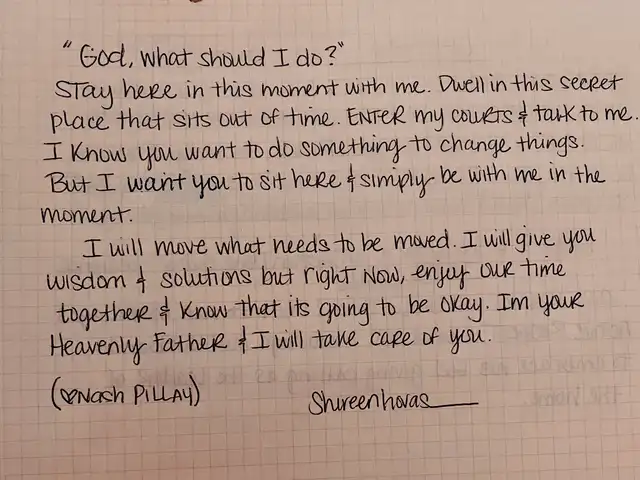 "God, what should I do?"
Stay here in this moment with me. Dwell in this secret
place that sits out of time. Enter my courts & talk to me.
I know you want to do something to change things.
But I want you to sit here & simply be with me in the
moment.
I will move what needs to be moved. I will give you
wisdom & solutions but right now, enjoy our time
together & know that its going to be okay. Im your
Heavenly Father & I will take care of you.
(♡Nash Pillay)
Shireenhovas